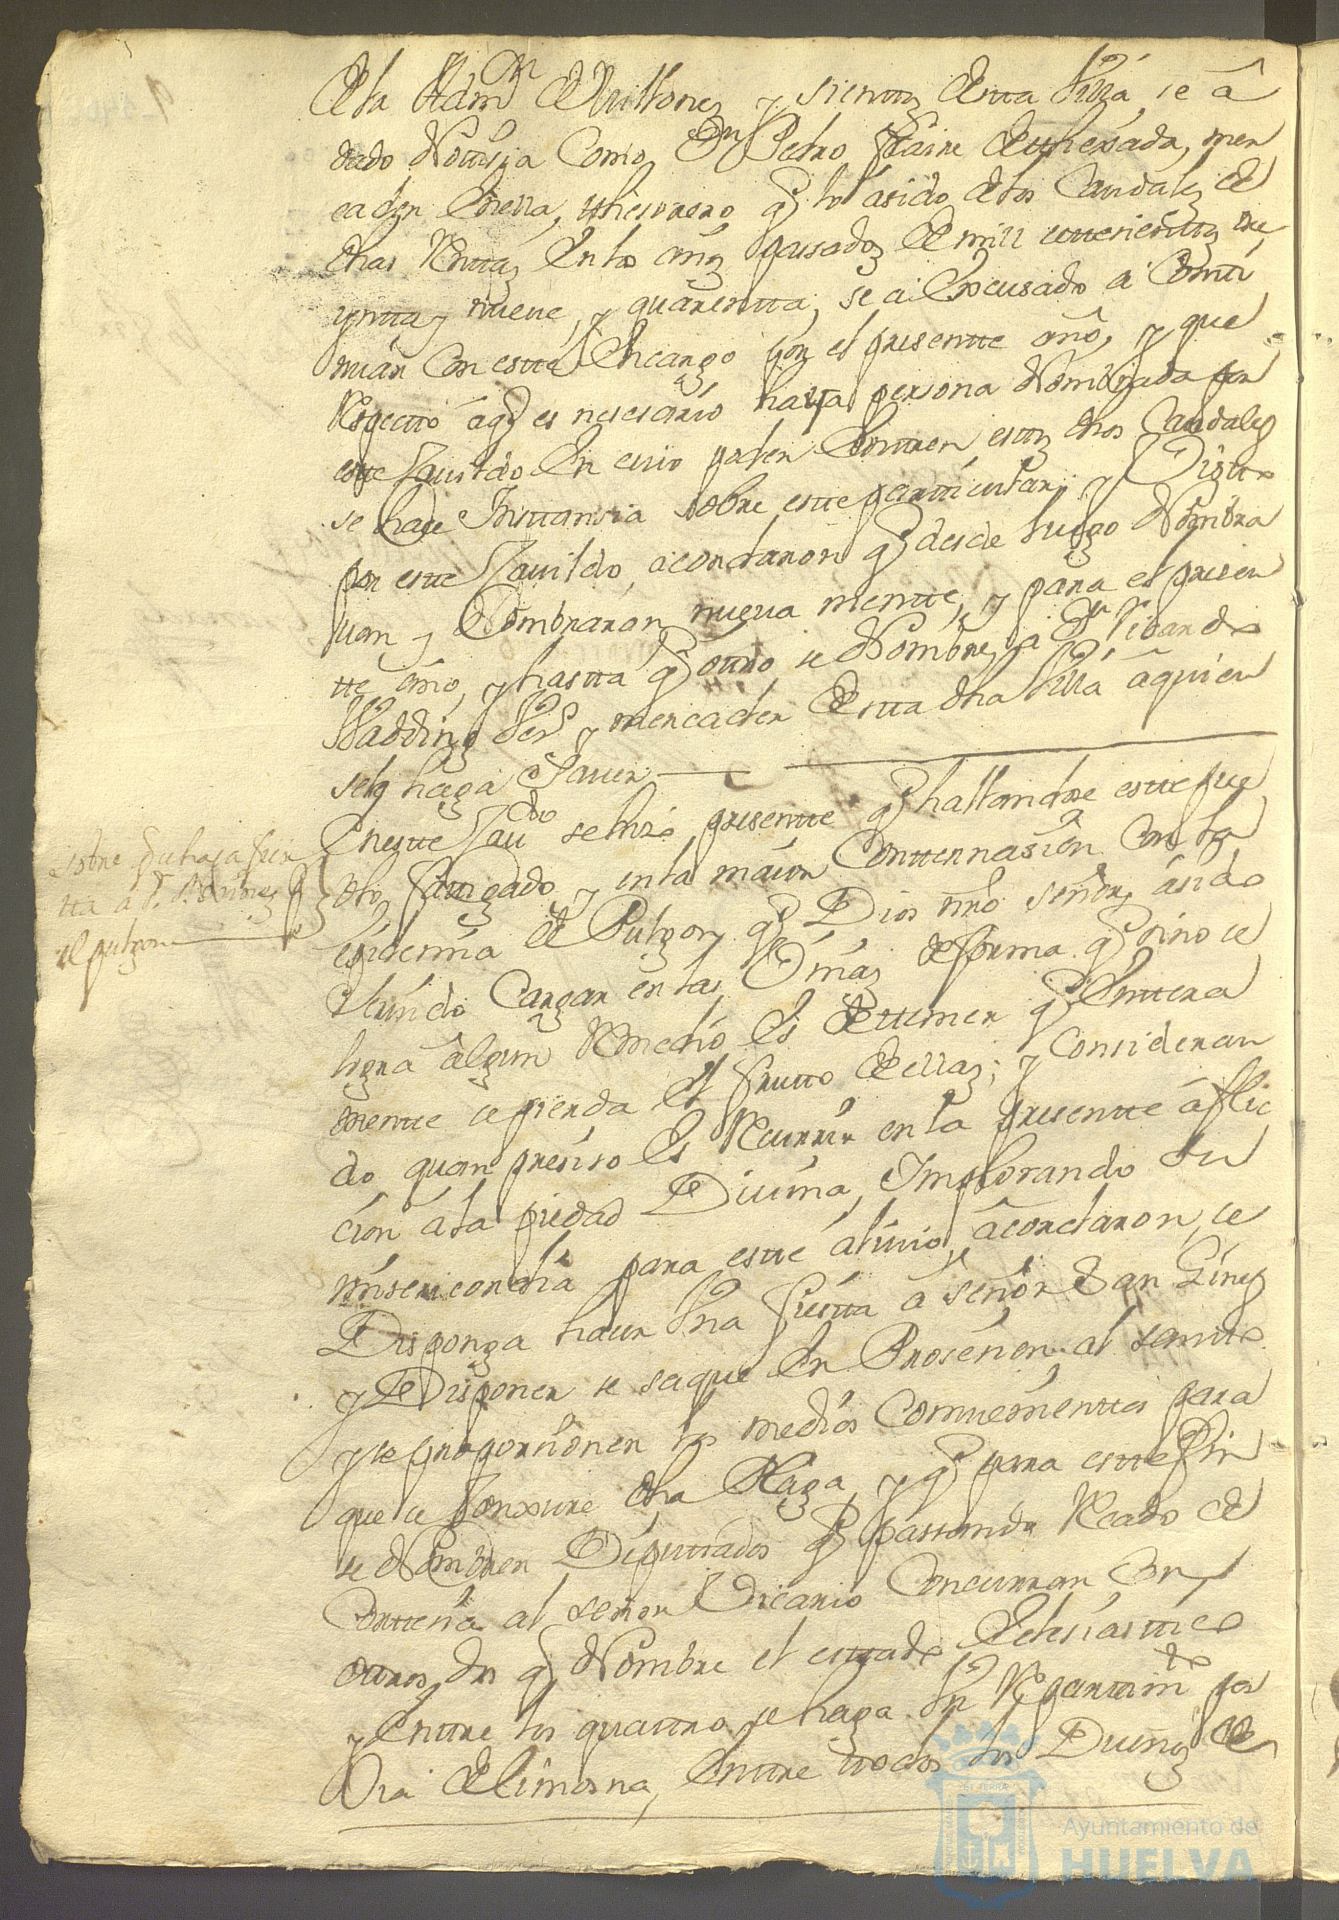 de la Adm.on de Millones y sientos de esta Villa, se â
dado Notisia como Dn Pedro
cader de ella, thesorero q.e lo â sido de los Caudales de
dhas Renttas en los años pasados de mill settesienttos tre
yntta y nueve, y quarentta, se a excusado a Contti
nuar con este Encargo por el presentte año, y que
Respecto â q.e es nesesario haya persona Nombrada por
este Cavildo en cuio poder Enttren estos dhos Caudales
se hace Insttansia sobre este particular; y Visto
por este Cavildo, acordaron q.e desde luego Nombra
van y Nombraron nueva mente, y para el presen
tte año, y hasta q.e otro se Nombre, a Dn Ricardo
Wadding Vez.o y mercader de esta dha Villa â quien
se le haga Saver
En este Cav.do se hizo presentte q.e hallandose este pue
blo fatigado y en la maior Consternasion con la
epidemia de Pulgon q.e Dios nro señor, â sido
servido Cargar en las Viñas de forma q.e si no se
logra algun Remedio es de temer q.e Entera
mente se pierda el frutto de ellas; y Consideran
do quan presiso es Recurrir en la presentte âflic
cion â la piedad Divina, Implorando su
misericordia para este alivio, acordaron, se
Disponga hacer Vna fiestta â señor San Gines
y Disponer se saque en Prosesion al santto
y se proporsionen los medios Combenienttes para
que se Conxure dha Plaga, y q.e para este fin
se Nombren Diputtados q.e passando Recado de
Conttesia al señor Vicario Concurran Con
ottros dos q.e Nombre el estado Eclesiasttico
y Enttre los quattro se haga Vn Repartim.to por
Via de limosna, Enttre ttodos los Dueños de
sobre q.e se haga fies
ta a Sr. S. Gines p.r
el pulgon
Ayuntamiento de
HUELVA